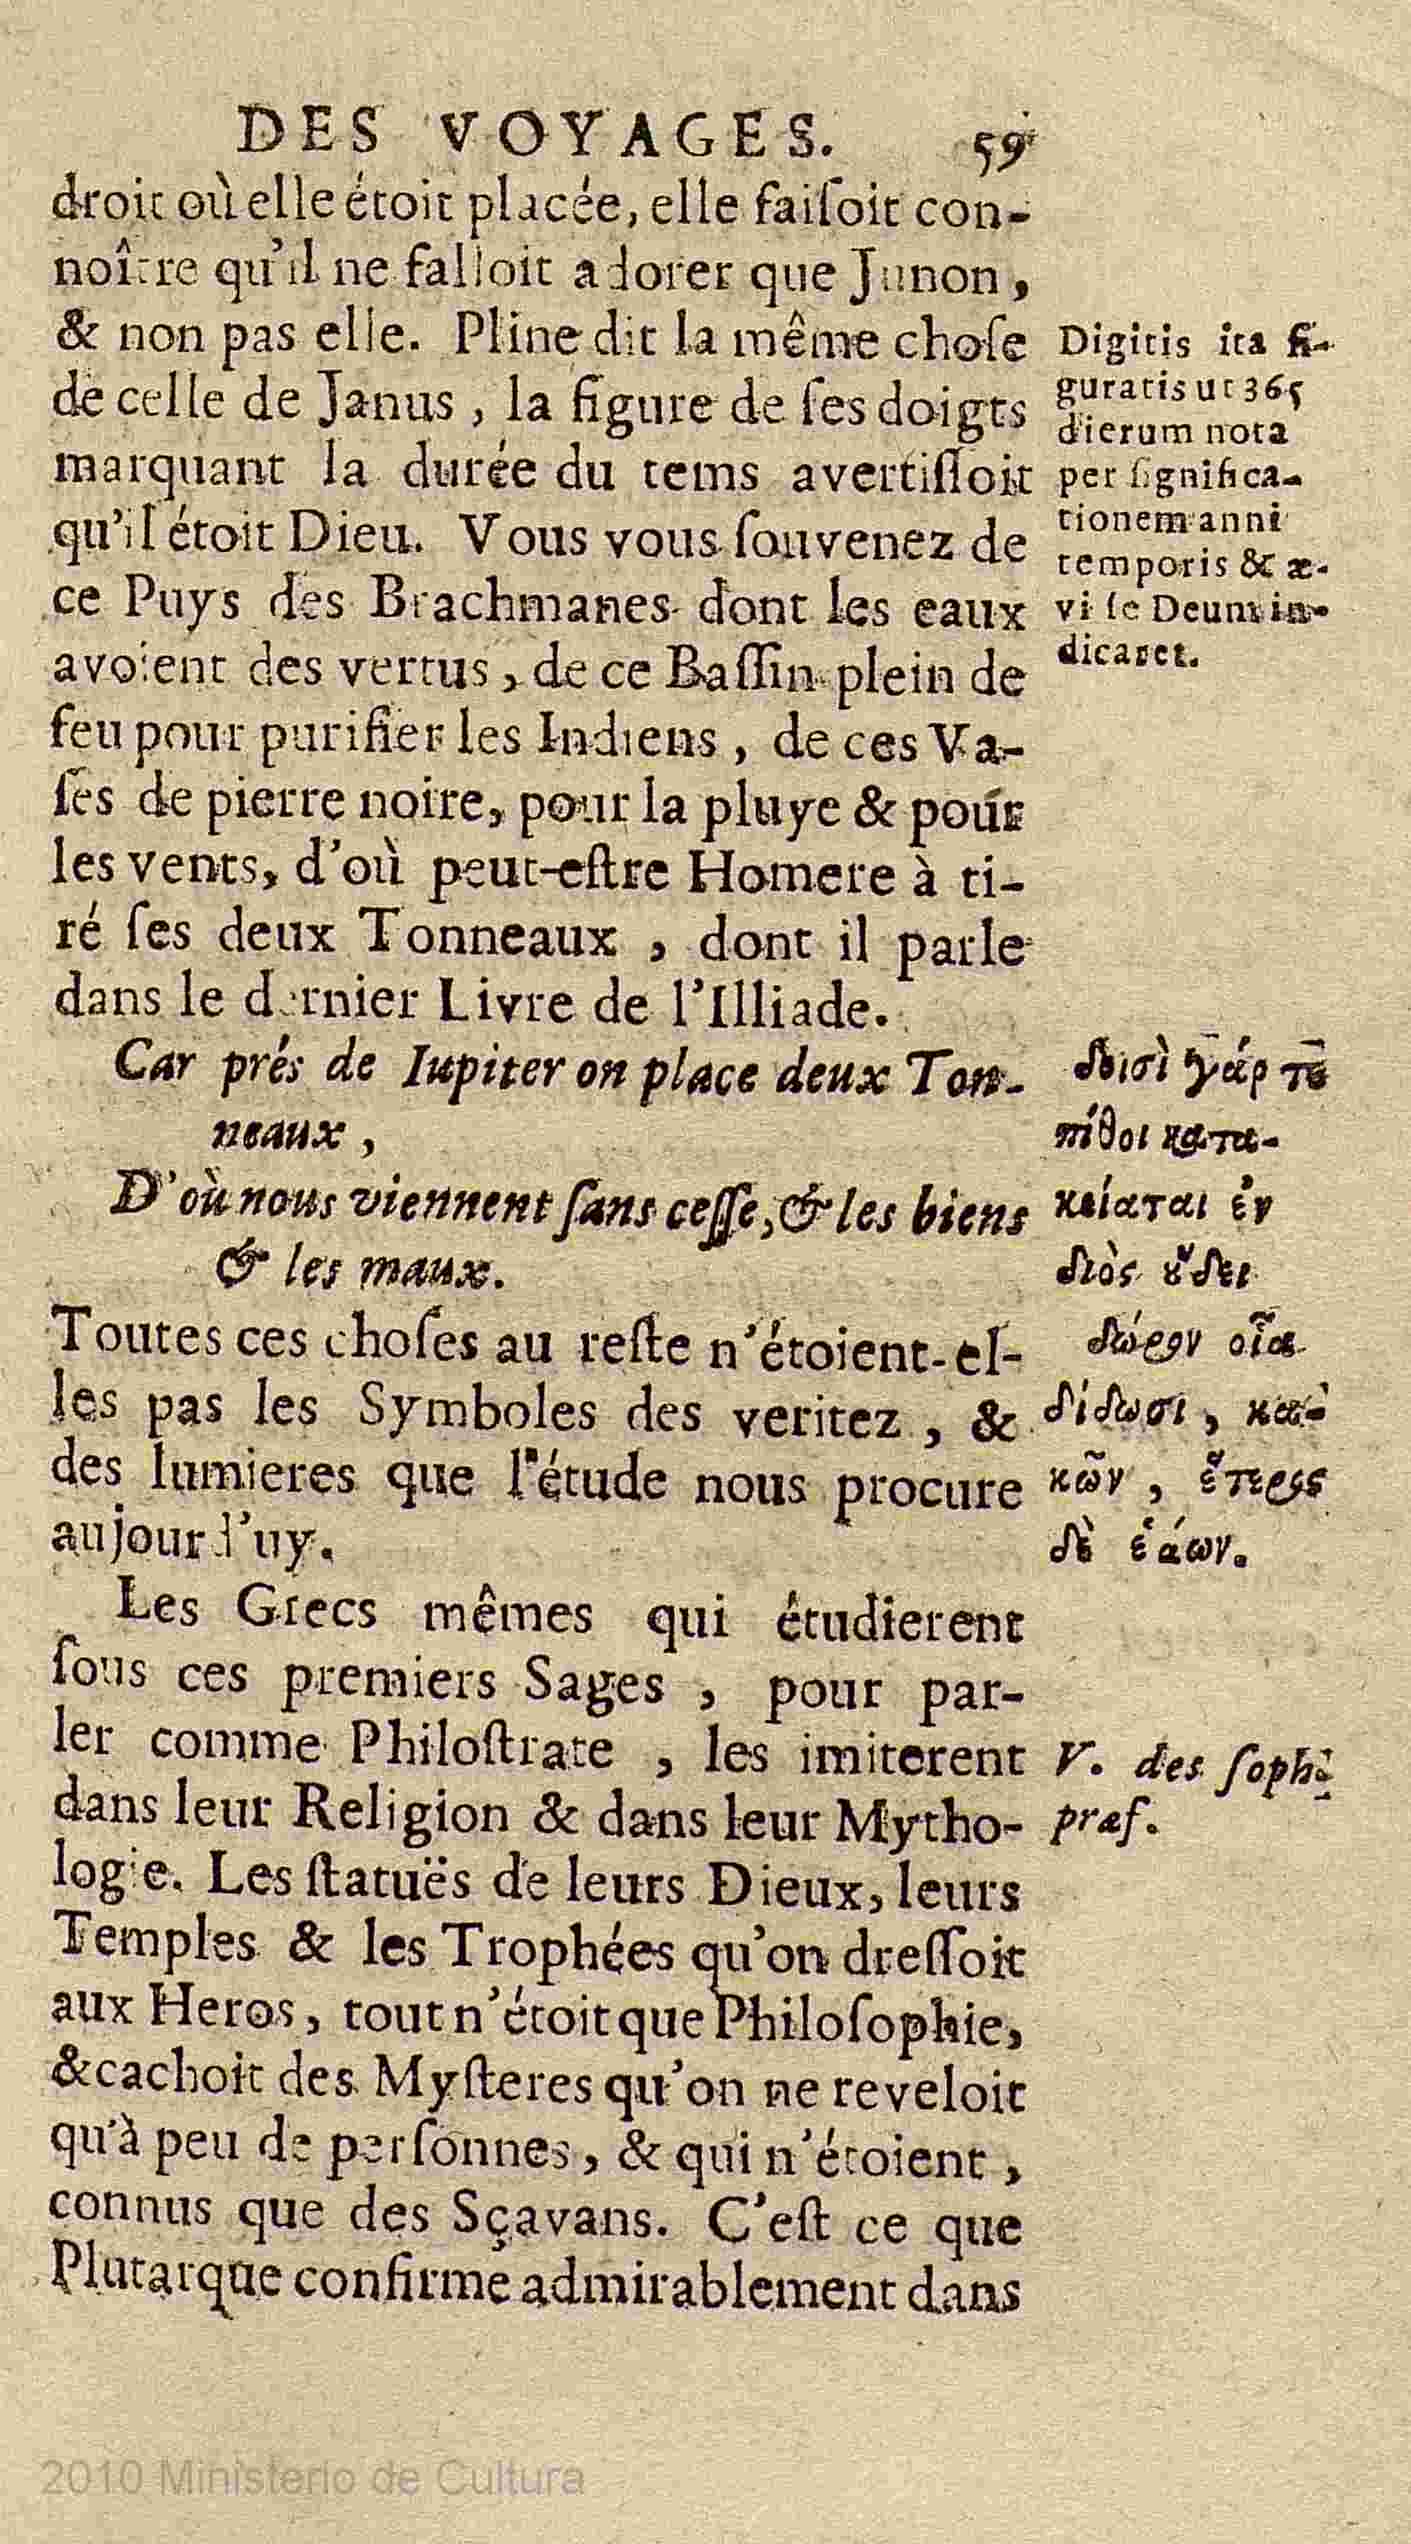 DES VOYAGES. 59
droit où elle étoit placée, elle faiſoit con-
noître qu'il ne falloit adorer que Junon,
& non pas elle. Pline dit la même choſe
de celle de Janus, la figure de ſes doigts
marquant la durée du tems avertiſſoit
qu'il étoit Dieu. Vous vous ſouvenez de
ce Puys des Brachmanes dont les eaux
avoient des vertus, de ce Baſſin plein de
feu pour purifier les Indiens, de ces Va-
ſes de pierre noire, pour la pluye & pour
les vents, d'où peut-eſtre Homere à ti-
ré ſes deux Tonneaux, dont il parle
dans le dernier Livre de l'Illiade.
Car prés de Iupiter on place deux Ton-
neaux,
D'où nous viennent ſans ceſſe, & les biens
& les maux.
Toutes ces choſes au reſte n'étoient-el-
les pas les Symboles des veritez, &
des lumieres que l'étude nous procure
aujourd'uy.
Les Grecs mêmes qui étudierent
ſous ces premiers Sages, pour par-
ler comme Philoſtrate, les imiterent
dans leur Religion & dans leur Mytho-
logie. Les ſtatuës de leurs Dieux, leurs
Temples & les Trophées qu'on dreſſoit
aux Heros, tout n'étoit que Philoſophie,
& cachoit des Myſteres qu'on ne reveloit
qu'à peu de perſonnes, & qui n'étoient,
connus que des Sçavans. C'eſt ce que
Plutarque confirme admirablement dans
Digitis ita fi-
guratis ut 365
dierum nota
per ſignifica-
tionem anni
temporis & æ-
vi ſe Deum in-
dicaret.
δοισὶ γάρ τε
πίθοι κατα-
κείαται ἐν
διὸς ȣ̓́δει
δώρων οἷα
δίδωσι, κα-
κῶν, ἕτερος
δὲ ἐάων.
V. des ſoph.
præf.
2010 Ministerio de Cultura